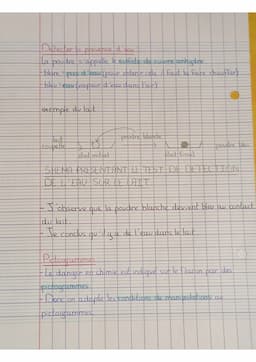 Détecter la présence d'eau
La poudre s'appelle le sulfate de cuivre anhydre
- blanc : pas d'eau (pour obtenir cela il faut la faire chauffer)
- bleu : eau (vapeur d'eau dans l'air)
exemple du lait
lait poudre blanche
coupelle poudre bleu
état initial état final
SHEMA PRESENTANT LE TEST DE DETECTION
DE L'EAU SUR LE LAIT
- J'observe que la poudre blanche devient bleu au contact
du lait.
- Je conclus qu'il y a de l'eau dans le lait.
Pictogrammes
- Le danger en chimie est indiqué sur le flacon par des
pictogrammes
- Donc on adapte les conditions de manipulations au
pictogrammes